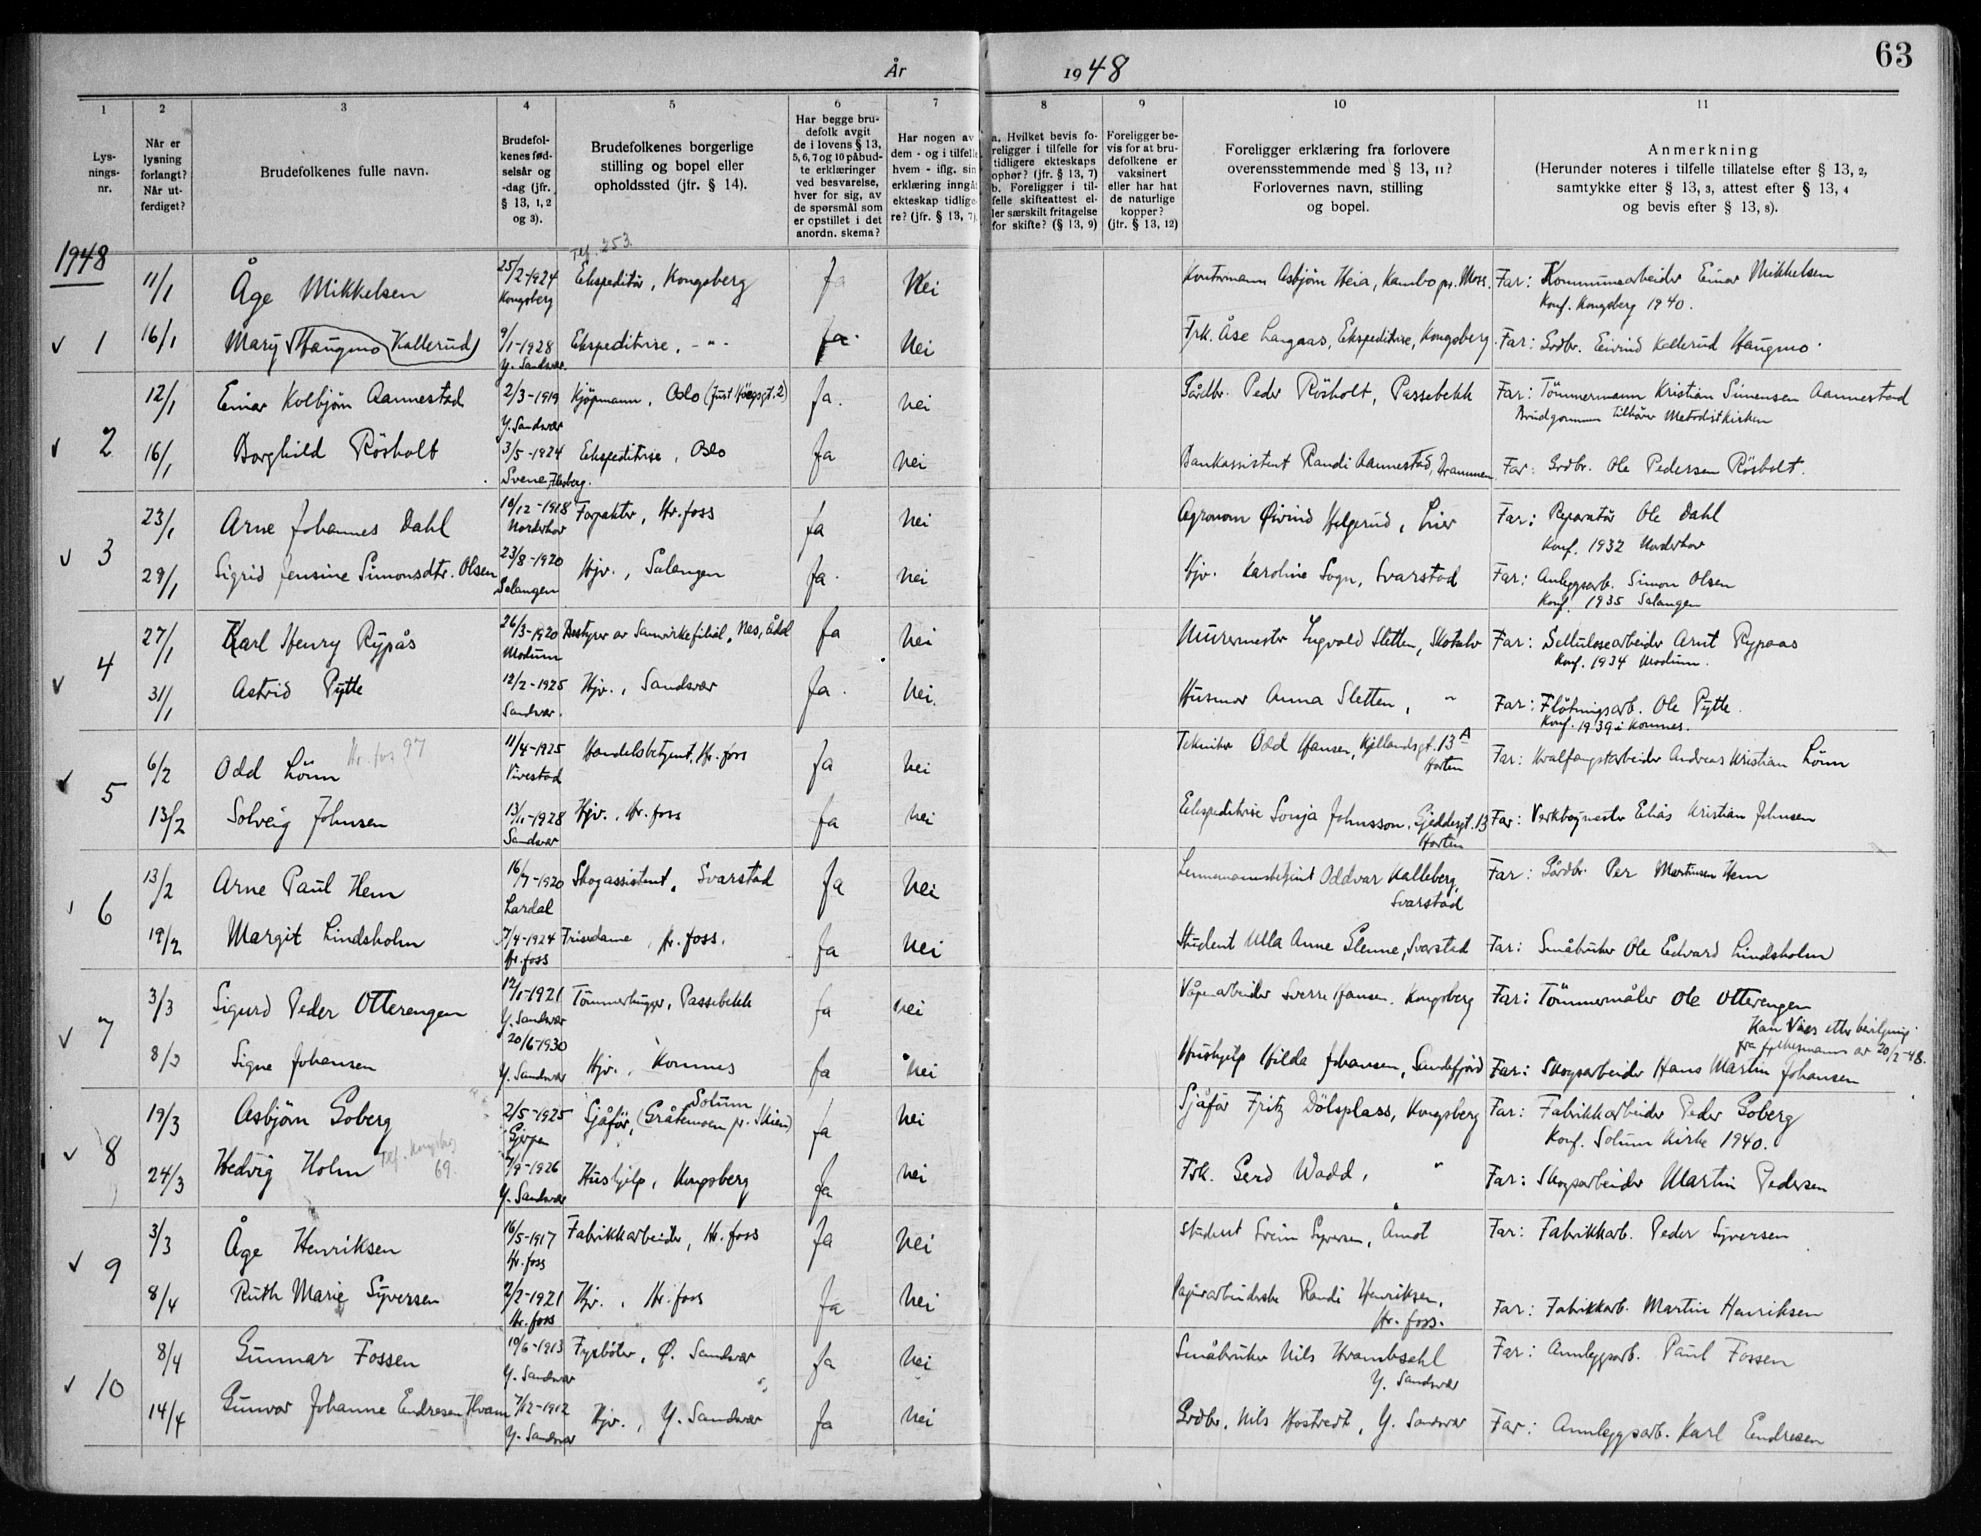 63
År 1948
1 2 3 4 5 6 7 8 9 10 11
Lys-
nings-
nr.
Når er
lysning
forlangt?
Når ut-
ferdiget?
Brudefolkenes fulle navn.
Brudefol-
kenes fød-
selsår og
-dag (jfr.
§ 13, 1, 2
og 3).
Brudefolkenes borgerlige
stilling og bopel eller
opholdssted (jfr. § 14).
Har begge bru-
defolk avgit
de i lovens § 13,
5, 6, 7 og 10 påbud-
te erklæringer
ved besvarelse,
hver for sig, av
de spørsmål som
er opstillet i det
anordn. skema?
Har nogen av
dem - og i tilfelle
hvem - iflg. sin
erklæring inngåt
ekteskap tidlige-
re? (jfr. § 13, 7).
a. Hvilket bevis fo-
religger i tilfelle for
tidligere ekteskaps
ophør? (jfr. § 13, 7)
b. Foreligger i til-
felle skifteattest el-
ler særskilt fritagelse
for skifte? (§ 13, 9)
Foreligger be-
vis for at bru-
defolkene er
vaksinert
eller har hat
de naturlige
kopper?
(jfr. § 13, 12)
Foreligger erklæring fra forlovere
overensstemmende med § 13, 11?
Forlovernes navn, stilling
og bopel.
Anmerkning
(Herunder noteres i tilfelle tillatelse efter § 13, 2,
samtykke efter § 13, 3, attest efter § 13, 4
og bevis efter § 13, 8).
1948
Tlf. 253.
11/1 Åge Mikkelsen 25/2-1924 Ekspeditør, Kongsberg Ja Nei Kontormann Asbjørn Heia, Kambo pr. Moss. Far: Kommunearbeider Einar Mikkelsen
Kongsberg Konf. Kongsberg 1940.
1 16/1 Mary Haugmo Kallerud 9/1-1928 Ekspeditrise, -"- Ja. Nei Frk. Åse Langaas, Ekspeditrise, Kongsberg. Far: Grdbr. Eivind Kallerud Haugmo
Y. Sandsvær
12/1 Einar Kolbjørn Aannestad 2/3-1919 Kjøpmann, Oslo (Just Høegsgt. 2) Ja. Nei Gårdbr. Peder Rösholt, Passebekk Far: Tömmermann Kristian Simensen Aannestad
Y. Sandsvær Brudgommen tilhører Metodistkirken
2 16/1 Borghild Rösholt 3/5-1924 Ekspeditrise, Oslo Ja Nei Bankassistent Randi Aannestad, Drammen Far: Grdbr. Ole Pedersen Rösholt.
Svene, Flesberg.
23/1 Arne Johannes Dahl 10/12-1918 Forpakter, Hv. foss Ja Nei Agronom Øivind Helgerud, Lier Far: Reparatør Ole Dahl
Norderhov Konf. 1932 Norderhov
3 29/1 Sigrid Jensine Simonsdtr. Olsen 23/8-1920 Hjv., Salangen Ja. Nei Hjv. Karoline Sogn, Svarstad Far: Anleggsarb. Simon Olsen
Salangen Konf. 1935 Salangen
27/1 Karl Henry Rypås 26/3-1920 Bestyrer av Samvirkefilial, Nes, Ådal Ja Nei Murermester Ingvald Sletten, Skotselv Far: Sellulosearbeider Arnt Rypaas
Modum Konf. 1934 Modum.
4 31/1 Astrid Pytte 12/2-1925 Hjv., Sandsvær Ja. Nei. Husmor Anna Sletten, " Far: Fløtningsarb. Ole Pytte.
Sandsvær. Konf. 1939 i Komnes.
6/2 Odd Lönn Hv. foss 97 11/4-1925 Handelsbetjent, Hv. foss Ja Nei Tekniker Odd Hansen, Kjellandsgt. 13 A Far: Hvalfangstarbeider Andreas Kristian Lönn
Vivestad Horten
5 13/2 Solveig Johnsen 13/11-1928 Hjv., Hv. foss Ja Nei Ekspeditrise Sonja Johnsson, Gjeddesgt. 13 Far: Verktøymester Elias Kristian Johnsen
Sandsvær Horten
13/2 Arne Paul Hem 16/7-1920 Skogassistent, Svarstad Ja Nei Lennsmannsbetjent Oddvar Kalleberg, Far: Gårdbr. Per Martinsen Hem
Lardal Svarstad
6 19/2 Margit Lindsholm 7/4-1924 Frisedame, Hv. foss. Ja Nei Student Ulla Anne Glenne, Svarstad Far: Småbruker Ole Edvard Lindsholm
Hv. foss
3/3 Sigurd Peder Otterengen 12/1-1921 Tömmerhugger, Passebekk Ja Nei Våpenarbeider Sverre Hansen, Kongsberg Far: Tömmermåler Ole Otterengen
Y. Sandsvær Kan vies etter bevilgning
fra fylkesmannen av 20/2-48.
7 8/3 Signe Johansen 20/6-1930 Hjv., Komnes Ja Nei Hushjelp Hilda Johansen, Sandefjord Far: Skogsarbeider Hans Martin Johansen
Y. Sandsvær
19/3 Asbjörn Goberg 2/5-1925 Sjåför, (Gråtenmoen pr. Skien) Solum Ja Nei Sjåför Fritz Dölsplass, Kongsberg Far: Fabrikkarbeider Peder Goberg
Gjerpen Konf. Solum kirke 1940.
8 24/3 Hedvig Holm Tlf. Kongsberg 69. 7/9-1926 Hushjelp, Kongsberg Ja Nei Frk. Gerd Wadd, " Far: Skogsarbeider Martin Pedersen
Y. Sandsvær
3/3 Åge Henriksen 16/5-1917 Fabrikkarbeider, Hv. foss Ja Nei Student Svein Syversen, Åmot Far: Fabrikkarb. Peder Syversen
Hv. foss
9 8/4 Ruth Marie Syversen 2/2-1921 Hjv., Hv. foss Ja Nei Papirarbeiderske Randi Henriksen, Far: Fabrikkarb. Martin Henriksen
Hv. foss Hv. foss.
8/4 Gunnar Fossen 19/6-1913 Fyrbøter, Ø. Sandsvær Ja Nei Småbruker Nils Krambsehl Far: Annleggsarb. Paul Fossen
Y. Sandsvær Y. Sandsvær
10 14/4 Gunvor Johanne Endresen Hvam 7/12-1912 Hjv., Y. Sandsvær Ja Nei Grdbr. Nils Hostvedt, Y. Sandsvær Far: Annleggsarb. Karl Endresen
Y. Sandsvær